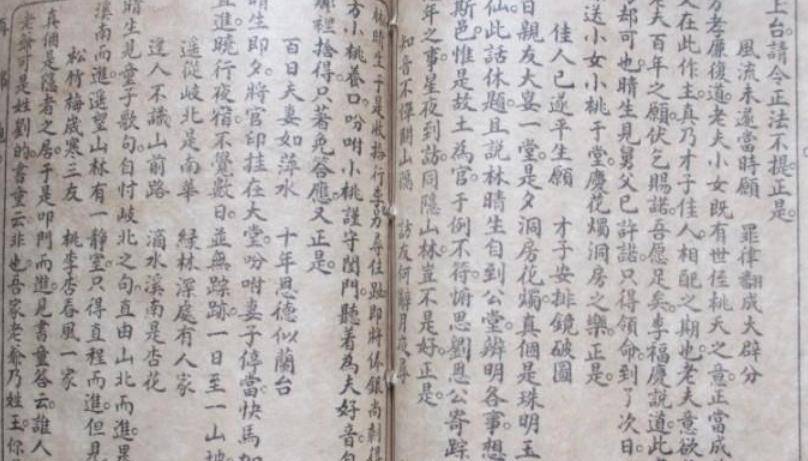 上台請令正法不提正是
風流未遂當時願 罪律翻成大辟分
方孝廉復道老夫小女既有世侄桃夭之意正當成
人在此作主真乃才子佳人相配之期也老夫意欲
夫百年之願伏乞賜諾吾愿足矣李福慶說道此
却可也晴生見舅父已許諾只得領命到了次日
送小女小桃于堂慶花燭洞房之樂正是
佳人已遂平生願 才子安排鏡破圖
日親友大宴一堂是夕洞房花燭真個是珠明玉
仙此話休題且說林晴生自到公堂辨明各事想
斯邑惟是故土為官于例不符俯思劉恩公寄踪
年之事星夜到訪同隱山林豈不是好正是
知音不憚關山隔 訪友何辭月夜尋
林晴生于是收拾行李另尋住趾即將俸銀尚剩
方小桃養口吩咐小桃謹守閨門聽著為夫好音
裡捨得只著免答應又正是
百日夫妻如萍水 十年恩德似蘭台
晴生即夕將官印挂在大堂吩咐妻子停當快馬加
直進曉行夜宿不覺數日並無踪跡一日至一山坡
遙從岐北是南華 綠林深處有人家
達人不識山前路 滴水溪南是杏花
晴生見童子歌句自忖岐北之句直由山北而進果
溪南而進遥望山林有一靜室只得直程而進但見
松竹梅歲寒三友 桃李杏春風一家
真個是隱者之居于是叩門而進見書童答云誰人
老爺可是姓劉的書童云非也吾家老爺乃姓王你